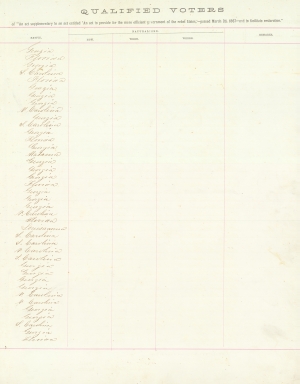 QUALIFIED VOTERS
of "An act supplementary to an act entitled 'An act to provide for the more efficient government of the rebel States,'" passed March 23, 1867
NATIVITY.
NATURALIZED.
Georgia
Florida
Georgia
S. Carolina
Florida
Georgia
Georgia
Georgia
S. Carolina
Georgia
S. Carolina
Georgia
Florida
Georgia
Alabama
Georgia
Georgia
Georgia
Florida
Georgia
Georgia
Georgia
S. Carolina
Florida
S. Carolina
S. Carolina
S. Carolina
S. Carolina
Georgia
Georgia
Georgia
Georgia
S. Carolina
S. Carolina
Georgia
Georgia
S. Carolina
Georgia
Florida